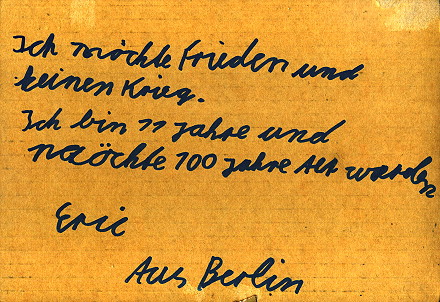 Ich möchte Frieden und
keinen Krieg.
Ich bin 11 Jahre und
möchte 100 Jahre Alt warden
Eric
Aus Berlin